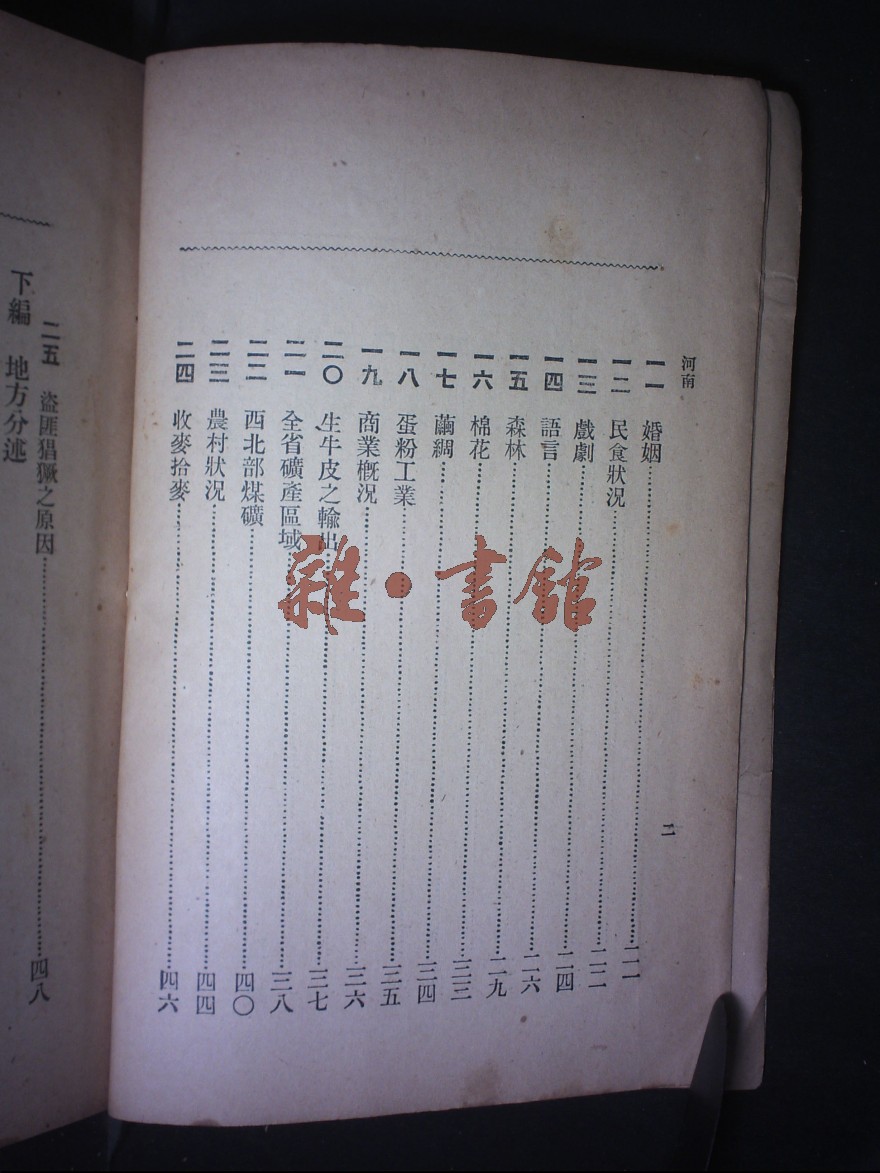 河南
二
一一 婚姻……二一
一二 民食狀況……二二
一三 戲劇……二四
一四 語言……二六
一五 森林……二九
一六 棉花……三三
一七 繭綢……三四
一八 蛋粉工業……三五
一九 商業概況……三六
二〇 生牛皮之輸出……三七
二一 全省礦產區域……三八
二二 西北部煤礦……四〇
二三 農村狀況……四四
二四 收麥拾麥……四六
二五 盜匪猖獗之原因……四八
下編 地方分述
雜·書館